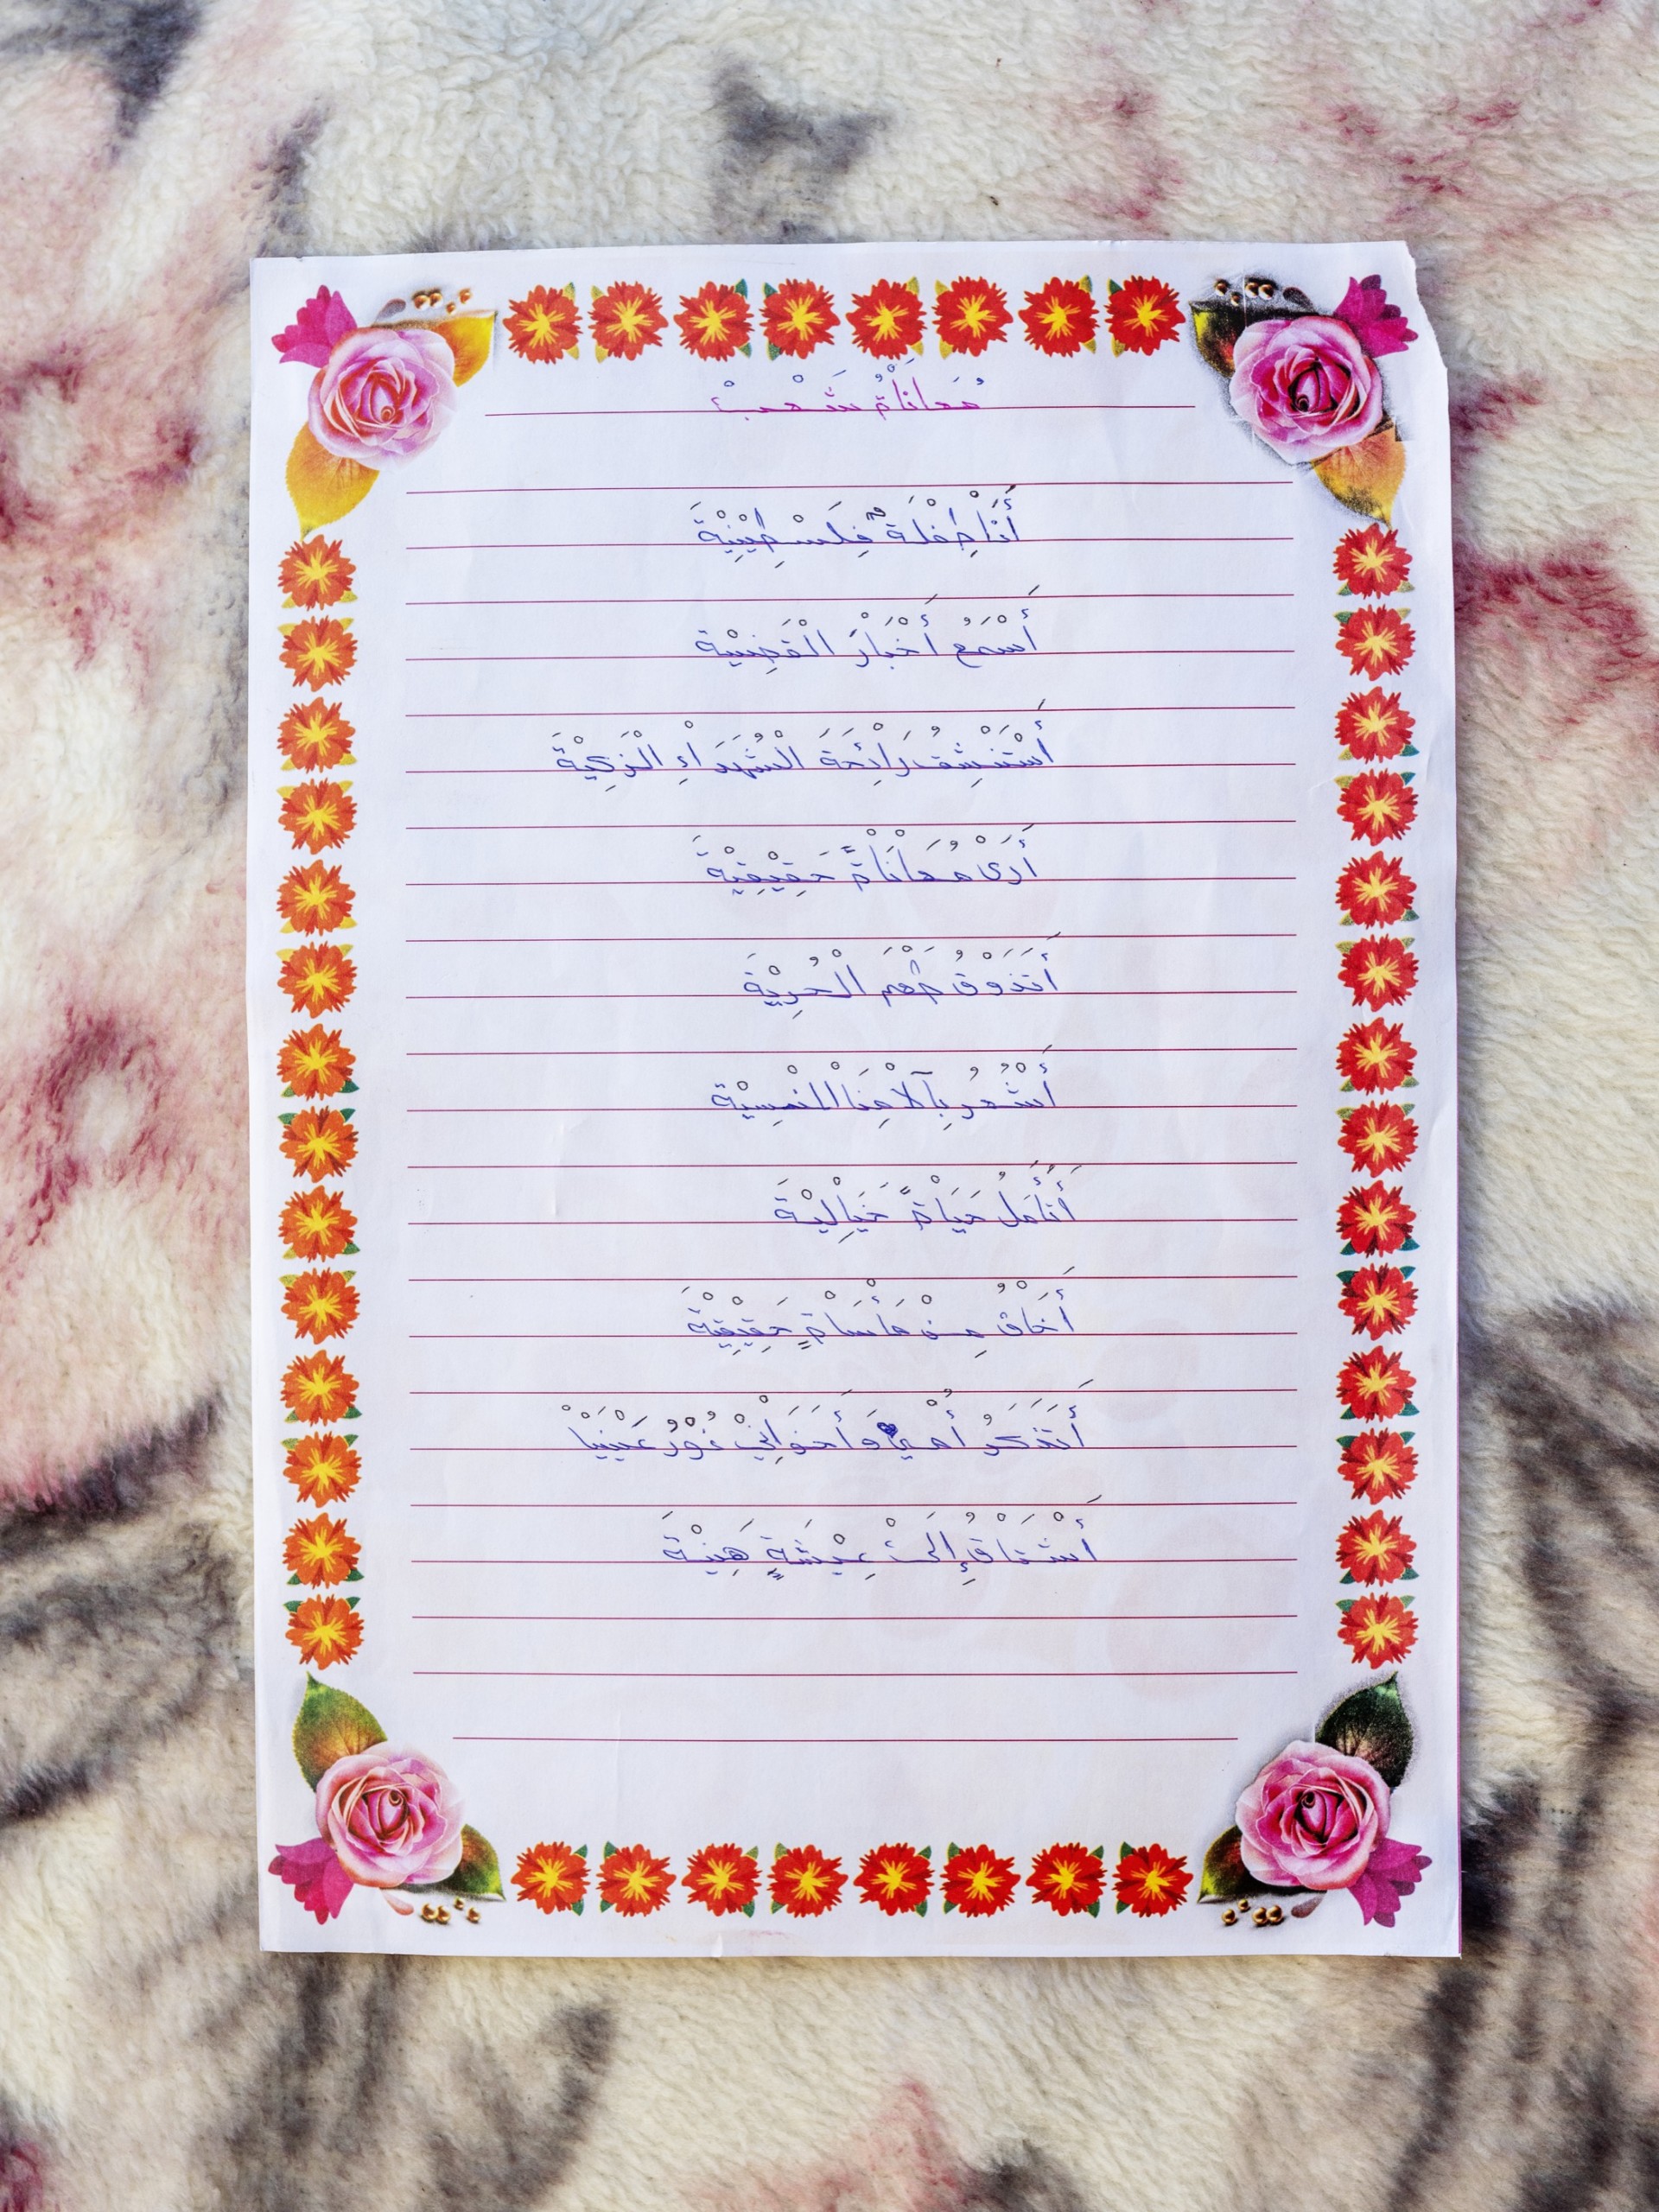 مُعَانَاةُ شَعْبْ
أَنَا طِفْلَةٌ فِلَسْطِينِيْةَ
أَسْمَعُ أَخْبَارَ الْقَضِيْةَ
أَسْتَنْشِقُ رَائِحَةَ الْشُهَدَاْءِ الْزَكِيْةَ
أَرَىْ مُعَانَاْةً حَقِيْقِيْةَ
أَتَذَوْقُ طَعْمَ الْحُرِيْةَ
أَشْعُرُ بِآلَاْمِنَا الْنَفْسِيْةَ
أَتَأَمَلُ حَيَاْةً خَيَالِيْةَ
أَخَاْفُ مِنْ مَأْسَاْةٍ حَقِيْقِيْةَ
أَتَذَكَرُ أُمِيْ وَ أَخَوَاتِيْ نُوْرُ عَيْنَيْاْ
أَشْتَاْقُ إِلَىْ عِيْشَةٍ هَنِيْةَ